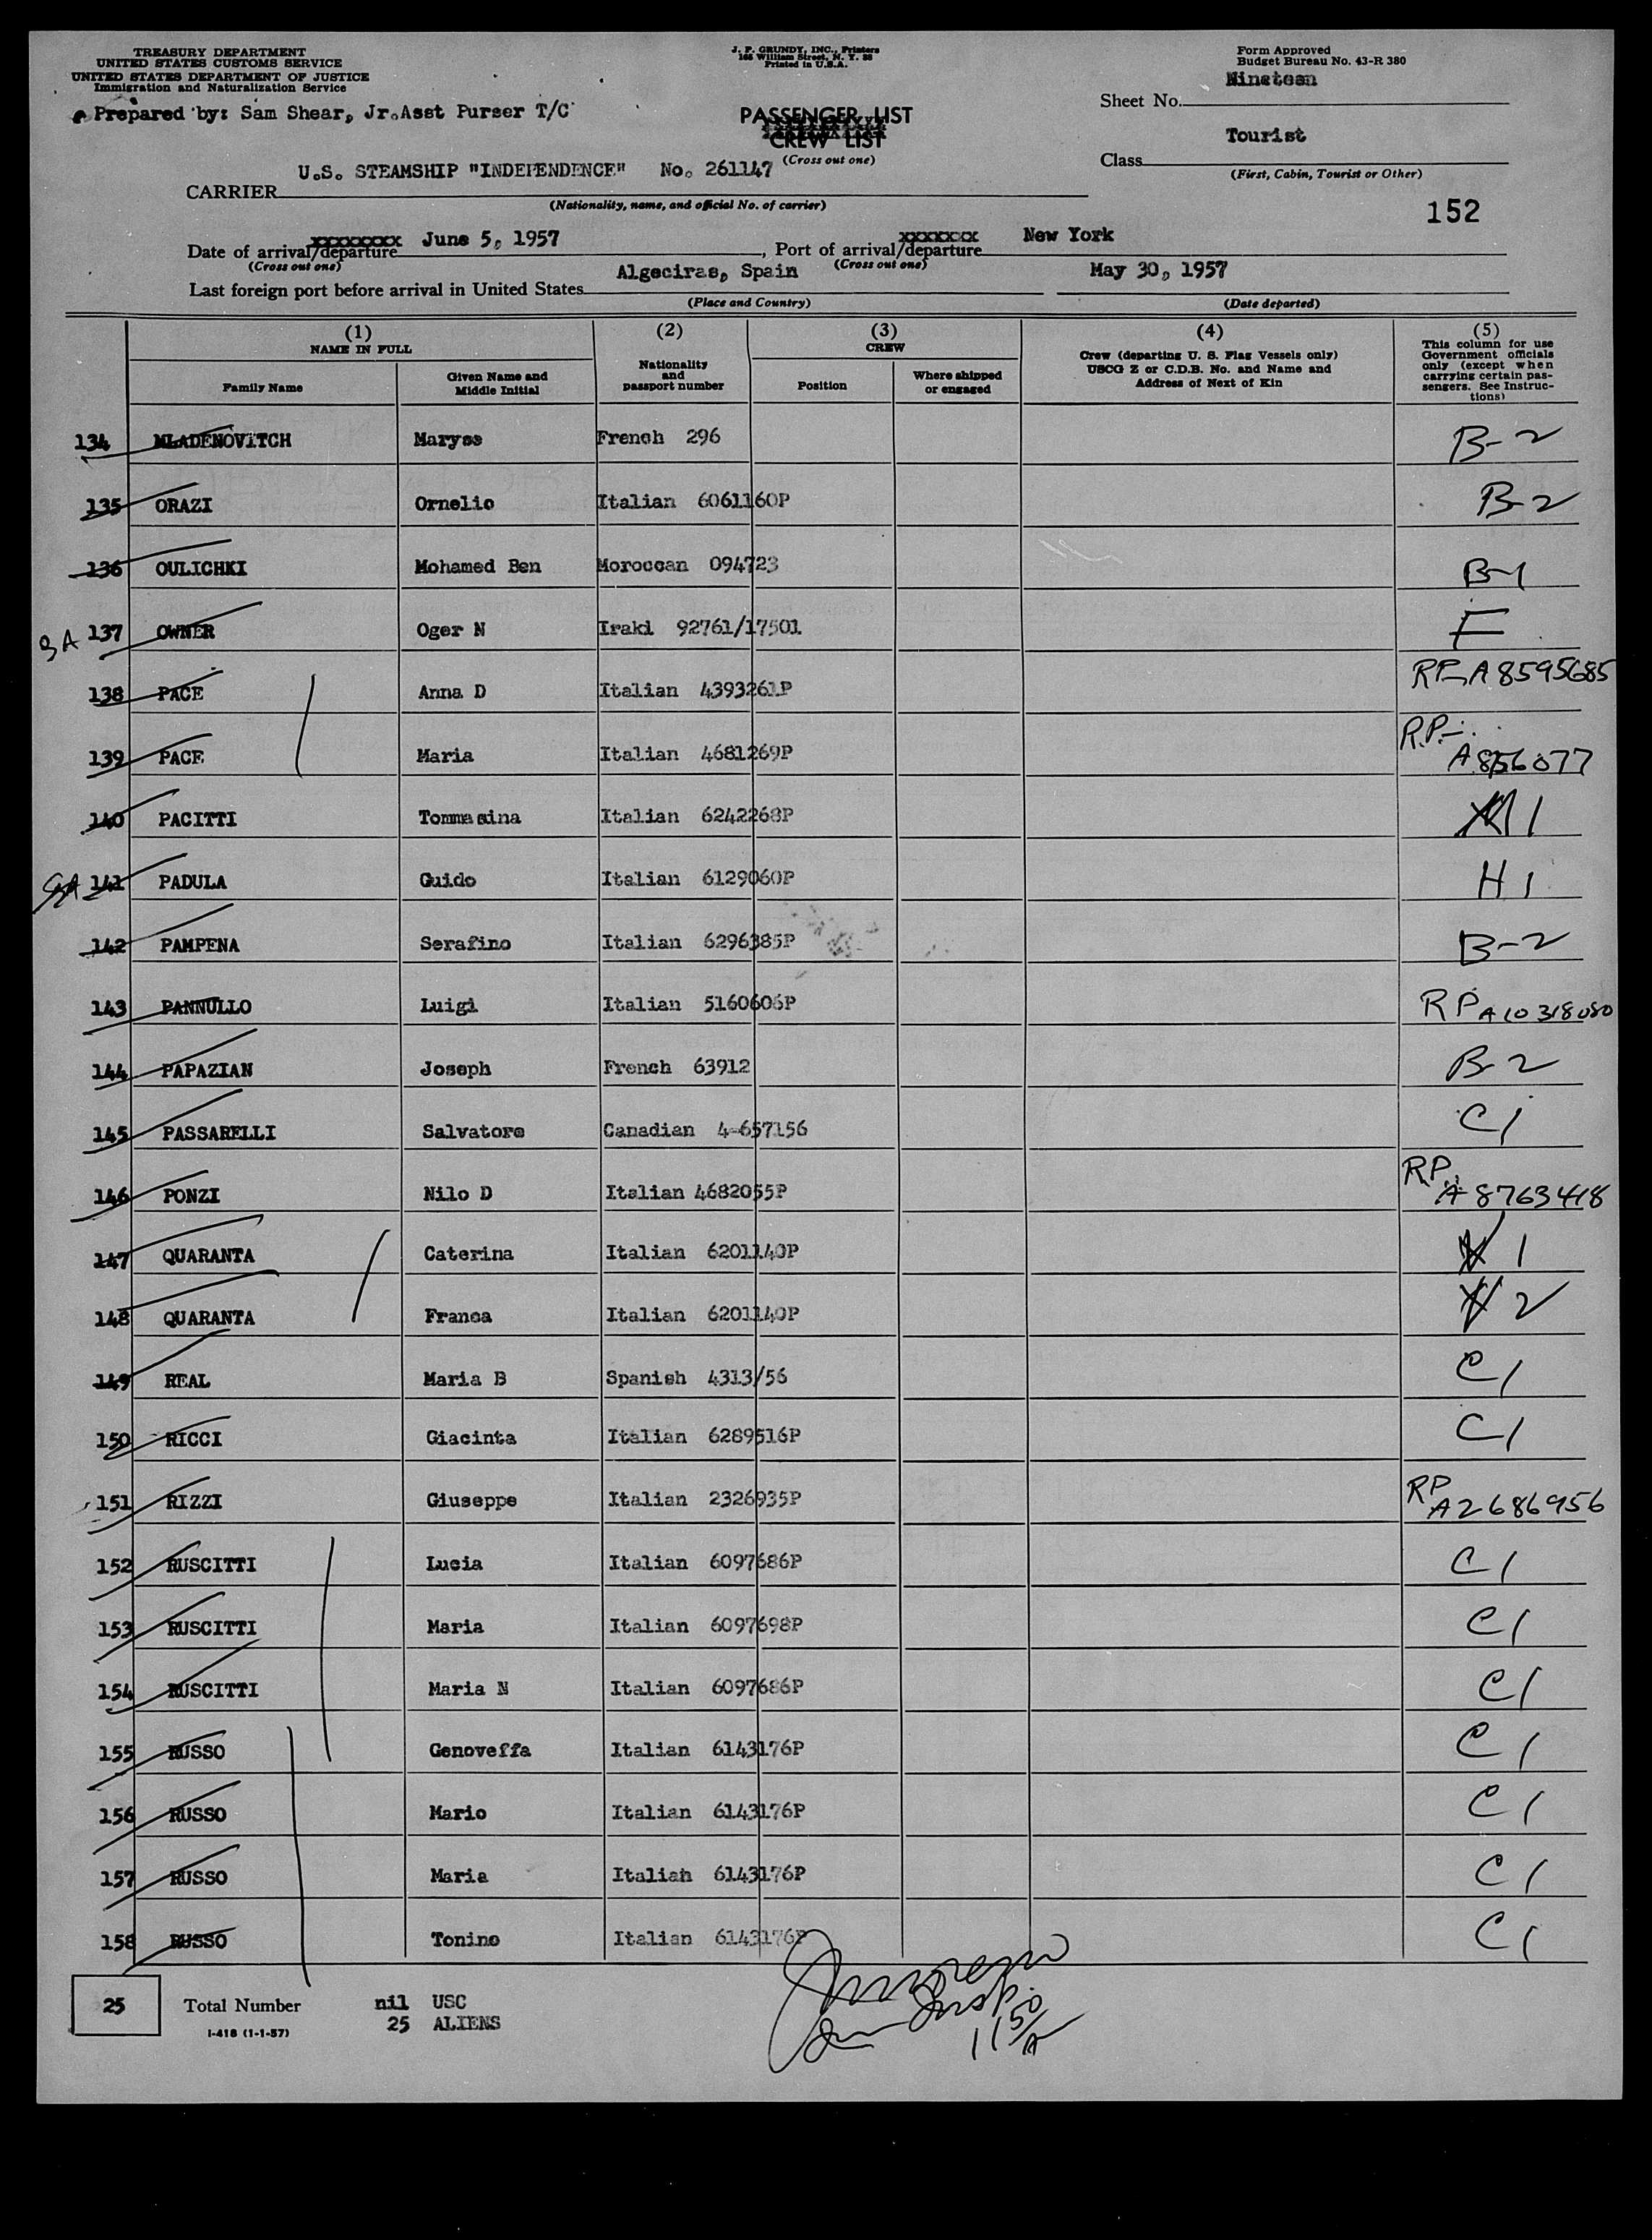 TREASURY DEPARTMENT
UNITED STATES CUSTOMS SERVICE
UNITED STATES DEPARTMENT OF JUSTICE
Immigration and Naturalization Service
Prepared by: Sam Shear, Jr.Asst Purser T/C
J. P. GRUNDY, INC., Printers
168 William Street, N. Y. 38
Printed in U.S.A.
Form Approved
Budget Bureau No. 43-R 380
Sheet No. Nineteen
PASSENGER LIST
CREW LIST
(Cross out one)
Class Tourist
(First, Cabin, Tourist or Other)
CARRIER U.S. STEAMSHIP "INDEPENDENCE" No. 261147
(Nationality, name, and official No. of carrier)
152
Date of arrival/departure xxxxxxxx June 5, 1957, Port of arrival/departure xxxxxxx New York
(Cross out one) (Cross out one)
Last foreign port before arrival in United States Algeciras, Spain May 30, 1957
(Place and Country) (Date departed)
(1) NAME IN FULL
Family Name
Given Name and Middle Initial
(2) Nationality and passport number
(3) CREW
Position
Where shipped or engaged
(4) Crew (departing U. S. Flag Vessels only) USCG Z or C.D.B. No. and Name and Address of Next of Kin
(5) This column for use Government officials only (except when carrying certain passengers. See Instructions)
134 MLADENOVITCH Maryse French 296 B-2
135 ORAZI Ornelio Italian 6061160P B-2
136 OULICHKI Mohamed Ben Moroccan 094723 B-1
3A 137 OWNER Oger N Iraki 92761/17501 F
138 PACE Anna D Italian 4393261P RP-A8595685
139 PACE Maria Italian 4681269P R.P-
140 PACITTI Tommasina Italian 6242268P 1
141 PADULA Guido Italian 6129060P H 1
142 PAMPENA Serafino Italian 6296385P B-2
143 PANNULLO Luigi Italian 5160606P RP A10318080
144 PAPAZIAN Joseph French 63912 B-2
145 PASSARELLI Salvatore Canadian 4-657156 C1
146 PONZI Nilo D Italian 4682055P RP A8763418
147 QUARANTA Caterina Italian 6201140P 1
148 QUARANTA Franca Italian 6201140P 2
149 REAL Maria B Spanish 4313/56 C1
150 RICCI Giacinta Italian 6289516P C1
151 RIZZI Giuseppe Italian 2326935P RP A2686956
152 RUSCITTI Lucia Italian 6097686P C1
153 RUSCITTI Maria Italian 6097698P C1
154 RUSCITTI Maria N Italian 6097686P C1
155 RUSSO Genoveffa Italian 6143176P C1
156 RUSSO Mario Italian 6143176P C1
157 RUSSO Maria Italian 6143176P C1
158 RUSSO Tonino Italian 6143176P C1
25 Total Number nil USC
25 ALIENS
I-418 (1-1-57)
Insp.